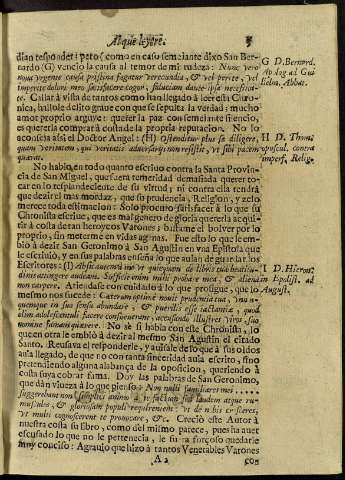 Al que leyere.
5
dian responder: pero como en caso semejante dixo San Ber-
nardo (G) vencio la causa al temor de mi rudeza: Nunc vero
nova urgente causa pristina fugatur verecundia, & vel perite, vel
imperite dolori meo satisfacere cogor, fiduciam dante ipsa necessita-
te. Callàr à vista de tantos como han llegado à leer esta Chro-
nica, huviera sido delito grave que se sepulta la verdad; mucho
amor proprio arguye: querer la paz con semejante silencio,
es quererla comprar à costa de la propria reputacion. No lo
aconseja assi el Doctor Angel. (H) Ostenditur plus se diligere,
quam veritatem, qui veritatis adversarijs non resistit, ut sibi pacem
quærat.
No hablo en todo quanto escrivo contra la Santa Provin-
cia de San Miguel, que fuera temeridad demasiada querer to-
car en lo resplandeciente de su virtud; ni contra ella tendrà
que dezir el mas mordaz, que su prudencia, Religion, y zelo
merece toda estimacion: Solo procuro satisfacer à lo que su
Chronista escrive, que es mal genero de gloria quererla acqui-
rir à costa de tan heroycos Varones; bastame el bolver por lo
proprio, sin meterme en vidas agenas. Fue esto lo que le em-
biò à dezir San Geronimo à San Agustin en una Epistola que
le escriviò, y en sus palabras enseña lo que aulan de guardar los
Escritores: (I) Absit autem à me ut quicquam de libris tuæ beatitu-
dinis attingere audeam. Sufficit enim mihi probare mea, & aliena
non carpere. Atiendase con cuidado à lo que prosigue, que lo
mesmo nos sucede: Cæterum optime novit prudentia tua, unum-
quemque in suo sensu abundare, & puerilis esse iactantiæ, quod
olim adolescentuli facere consueverunt, accusando illustres viros, suo
nomine famam quærere. No sè si habla con este Chronista, lo
que en otra le embiò à dezir al mesmo San Agustin el citado
Santo. Reusava el responderle, y avisale de lo que à sus oìdos
avia llegado, de que no con tanta sinceridad avia escrito, sino
pretendiendo alguna alabança de la oposicion, queriendo à
costa suya cobrar fama. Doy las palabras de San Geronimo,
que dàn viveza à lo que pienso: Non nulli familiares mei ....
suggerebant non simplici animo à te factum, sed laudem atque ru-
musculos, & gloriosam populi requirentem: ut de nobis cresceres,
ut multi cognoscerent te provocare, &c. Creciò este Autor à
nuestra costa su libro, como del mismo parece; pues ha aver
escusado lo que no le pertenecia, le fuera forçoso quedarle
muy conciso: Agravio que hizo à tantos Venerables Varones
A 2
con
G D. Bernard.
Apolog. ad Gui
lielm. Abbat.
H D. Thom.
opuscul. contra
imperf. Relig.
I D. Hieron.
in Epist. ad
August.